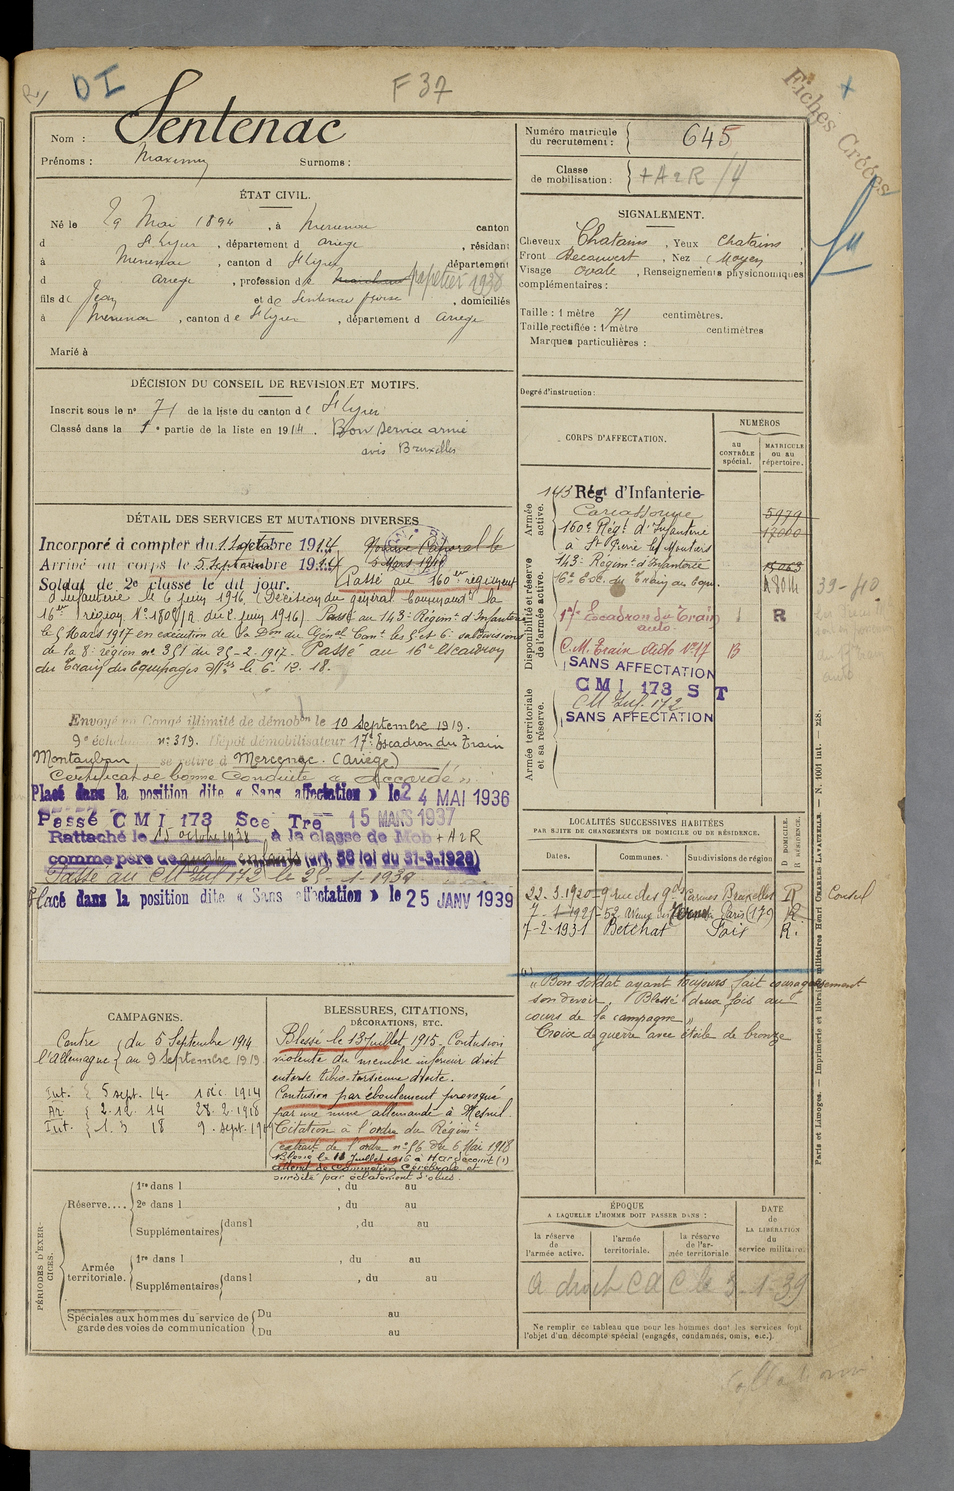 DI
F 37
Fiches Créées
Nom : Sentenac
Prénoms : Maximin Surnoms :
Numéro matricule du recrutement : 645
Classe de mobilisation : + A 2 R / 4
ÉTAT CIVIL.
Né le 29 Mai 1894, à Mercenac canton
d St Lizier, département d Ariège, résidant
à Mercenac, canton d St Lizier département
d Ariège, profession de papetier 1938
fils de Jean et de Sentenac, domiciliés
à Mercenac, canton de St Lizier, département d Ariège
Marié à
SIGNALEMENT.
Cheveux Chatains, Yeux chatains,
Front découvert, Nez Moyen
Visage ovale, Renseignements physionomiques
complémentaires :
Taille : 1 mètre 71 centimètres.
Taille rectifiée : 1 mètre centimètres
Marques particulières :
Degré d'instruction :
DÉCISION DU CONSEIL DE REVISION ET MOTIFS.
Inscrit sous le n° 71 de la liste du canton de St Lizier
Classé dans la 1e partie de la liste en 1914. Bon service armé
avis Bruxelles
DÉTAIL DES SERVICES ET MUTATIONS DIVERSES
Incorporé à compter du 1914 Nommé Caporal le
Arrivé au corps le 5 septembre 1914 5 Mars 1919
Soldat de 2e classe le dit jour. Passé au 160e régiment
d'Infanterie le 6 juin 1916 (Décision du général Command la
16e région N° 1809/R du 2 juin 1916) Passé au 143e Régimt d'Infanterie
le 5 Mars 1917 en exécution de la Don du Génal Cant les 5 et 6e subdivisions
de la 8e région n° 351 du 25-2-1917. Passé au 16e Escadron
du Train des Equipages Mres le 6-12-18.
Envoyé en Congé illimité de démobon le 10 Septembre 1919.
9e échelon n° 319. Dépôt démobilisateur 17e Escadron du Train
Montauban se retire à Mercenac (Ariège)
Certificat de bonne Conduite « Accordé ».
Placé dans la position dite « Sans affectation » le 24 MAI 1936
Passé CMI 173 Sce Tre 15 MARS 1937
Rattaché le 15 octobre 1938 à la classe de Mob + A 2 R
comme père de quatre enfants (art. 58 loi du 31-3-1928)
Passé au CM Inf 172 le 25-1-1939
Placé dans la position dite « Sans affectation » le 25 JANV 1939
CORPS D'AFFECTATION.
NUMÉROS
au CONTRÔLE spécial.
MATRICULE ou au répertoire.
Armée active.
143 Régt d'Infanterie 5979
Carcassonne
160e Régt d'Infanterie 17000
à St Pierre les Moutiers
143e Régimt d'Infanterie 15063
Disponibilité et réserve de l'armée active.
16e Esc. du Train des Equip.
17e Escadron du Train auto. 1 R
C.M. Train Auto N° 17 B
SANS AFFECTATION
CMI 173 S T
CM Inf. 172
SANS AFFECTATION
Armée territoriale et sa réserve.
39-40
LOCALITÉS SUCCESSIVES HABITÉES
PAR SUITE DE CHANGEMENTS DE DOMICILE OU DE RÉSIDENCE.
D DOMICILE. R RÉSIDENCE.
Dates. Communes. Subdivisions de région
22-3-1920 9 rue des gds Carmes Bruxelles R Consul
7-1-1925 52 Avenue des Ternes Paris (17e) R
7-2-1931 Betchat Foix R.
« Bon soldat ayant toujours fait courageusement
son devoir. Blessé deux fois au
cours de la campagne »
Croix de guerre avec étoile de bronze
CAMPAGNES.
Contre l'Allemagne du 5 Septembre 1914
au 9 Septembre 1919
Int. 5 sept. 14 - 1 déc. 1914
Ar. 2-12-14 28-2-1918
Int. 1-3 18 9-sept-1919
BLESSURES, CITATIONS,
DÉCORATIONS, ETC.
Blessé le 13 Juillet 1915. Contusion
violente du membre inférieur droit
entorse tibio-tarsienne droite.
Contusion par éboulement provoqué
par une mine allemande à Mesnil.
Citation à l'ordre du Régimt
extrait de l'ordre n° 56 du 6 Mai 1918
Blessé le 11 Juillet 1916 à Hardecourt (1)
atteint de commotion cérébrale et
surdité par éclatement d'obus.
PÉRIODES D'EXERCICES.
Réserve....
1re dans l , du au
2e dans l , du au
Supplémentaires dans l , du au
Armée territoriale.
1re dans l , du au
Supplémentaires dans l , du au
Spéciales aux hommes du service de garde des voies de communication
Du au
Du au
ÉPOQUE
A LAQUELLE L'HOMME DOIT PASSER DANS :
la réserve de l'armée active.
l'armée territoriale.
la réserve de l'armée territoriale
DATE de LA LIBÉRATION du service militaire.
A droit C d C le 3-1-39
Ne remplir ce tableau que pour les hommes dont les services font
l'objet d'un décompte spécial (engagés, condamnés, omis, e.c.).
Paris et Limoges. — Imprimerie et librairie militaires Henri CHARLES-LAVAUZELLE. — N. 1001 int. — 218.